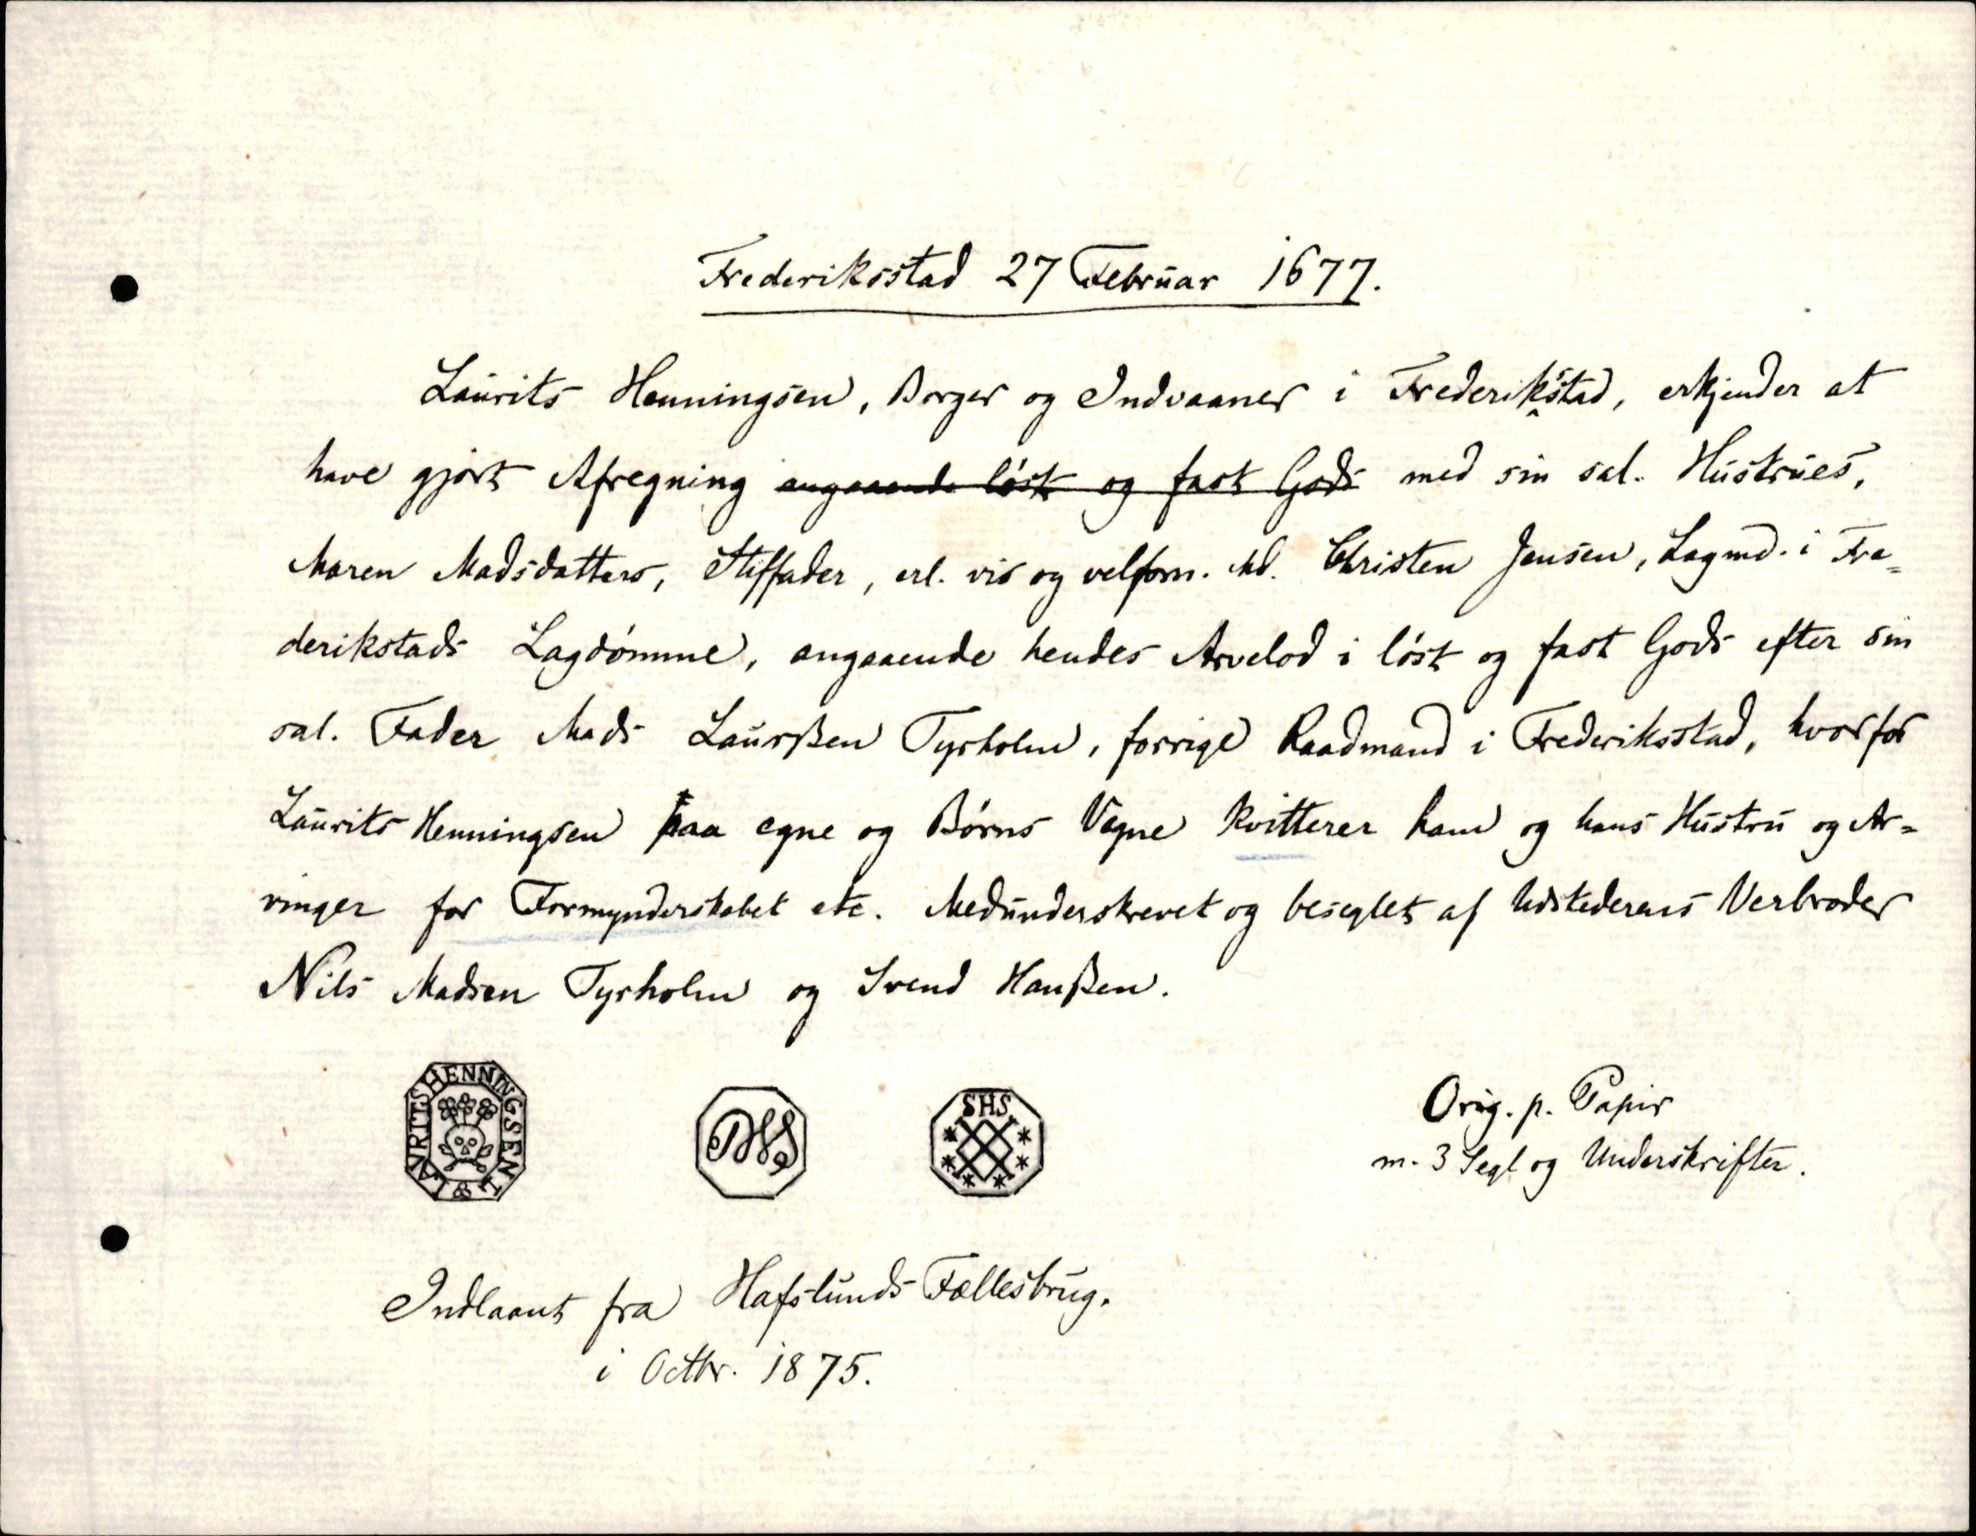 Frederiksstad 27 Februar 1677.
Laurits Henningsen, Borger og Indvaaner i Frederiksstad, erkjender at
have gjort Afregning angaaende løst og fast Gods med sin sal. Hustrues,
Maren Madsdatters, Stiffader, erl. vis og velfom. Md. Christen Jensen, Lagmd. i Fre=
derikstads Lagdømme, angaaende hendes Arvelod i løst og fast Gods efter sin
sal. Fader Mads Laurßen Tyrholm, forrige Raadmand i Frederiksstad, hvorfor
Laurits Henningsen paa egne og Børns Vegne kvitterer ham og hans Hustru og Ar=
vinger for Formynderskabet etc. Medunderskrevet og beseglet af Udstederens Verbroder
Nils Madsen Tyrholm og Svend Hanßen.
LAVRITS HENNINGSEN L &
SHS
Orig. p. Papir
m. 3 Segl og Underskrifter.
Indlaant fra Hafslunds Fællesbrug.
i Octbr. 1875.